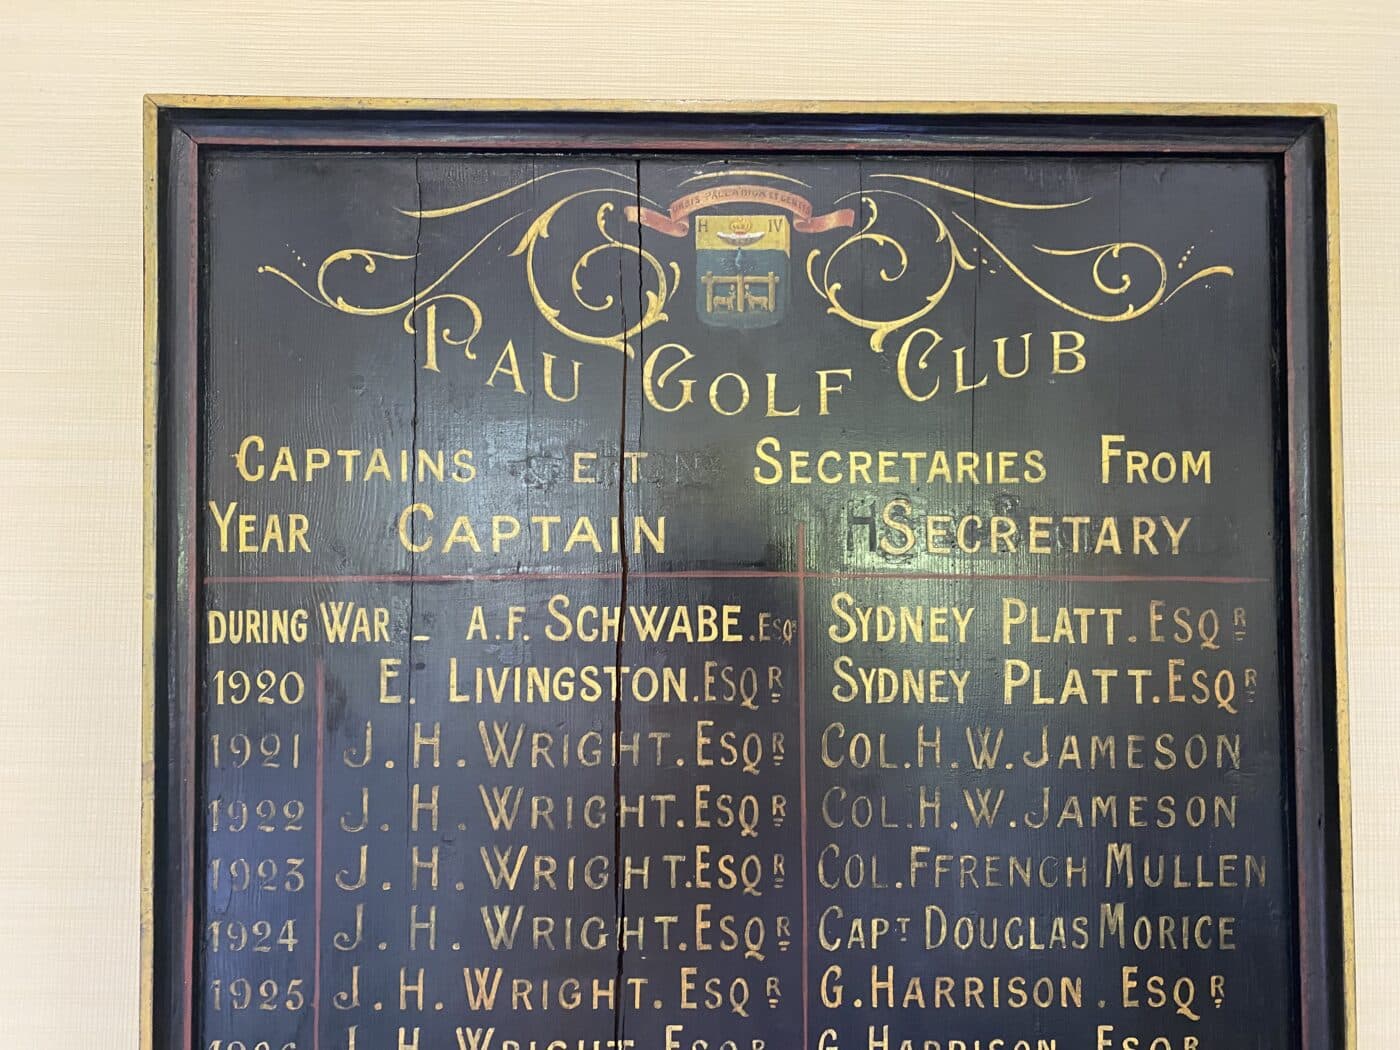 URBIS PALLADIUM ET GENTIS
H IV
PAU GOLF CLUB
CAPTAINS ET SECRETARIES FROM
YEAR CAPTAIN SECRETARY
DURING WAR – A.F. SCHWABE. ESQR SYDNEY PLATT. ESQR
1920 E. LIVINGSTON. ESQR SYDNEY PLATT. ESQR
1921 J. H. WRIGHT. ESQR COL. H. W. JAMESON
1922 J. H. WRIGHT. ESQR COL. H. W. JAMESON
1923 J. H. WRIGHT. ESQR COL. FFRENCH MULLEN
1924 J. H. WRIGHT. ESQR CAPT DOUGLAS MORICE
1925 J. H. WRIGHT. ESQR G. HARRISON. ESQR
1926 J. H. WRIGHT. ESQR G. HARRISON. ESQR